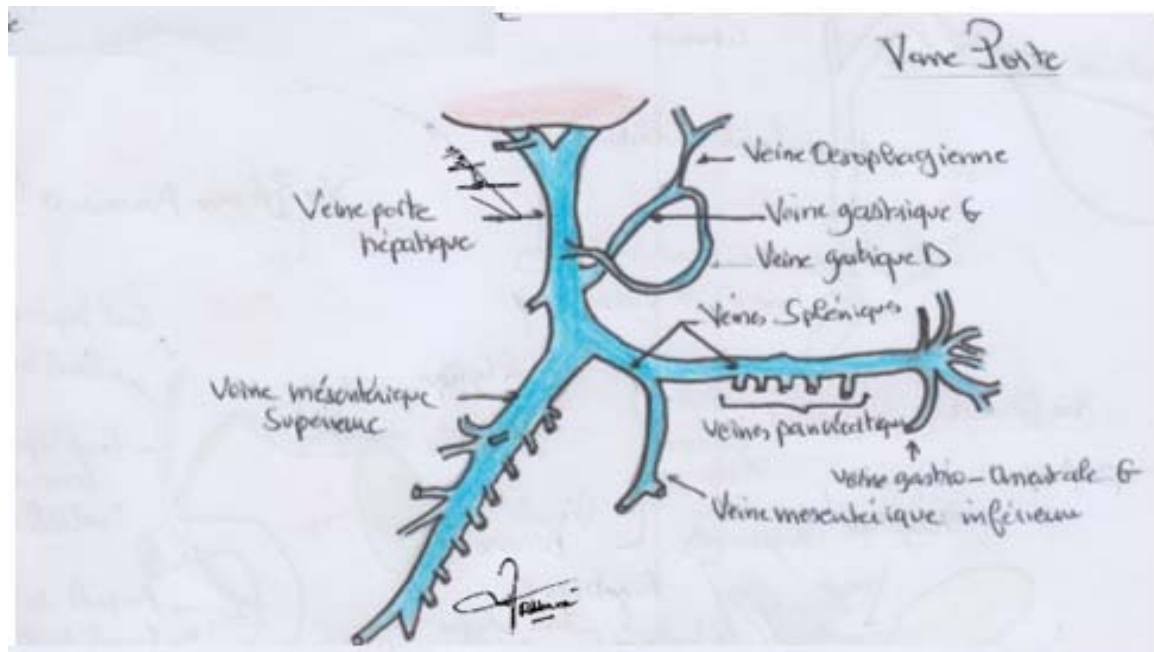 Veine Porte
Veine Oesophagienne
Veine gastrique G
Veine gatrique D
Veine porte
hépatique
Veines Spléniques
Veine mésentérique
Superieure
Veines pancréatiques
Veine gastro-omentale G
Veine mesentérique inférieure